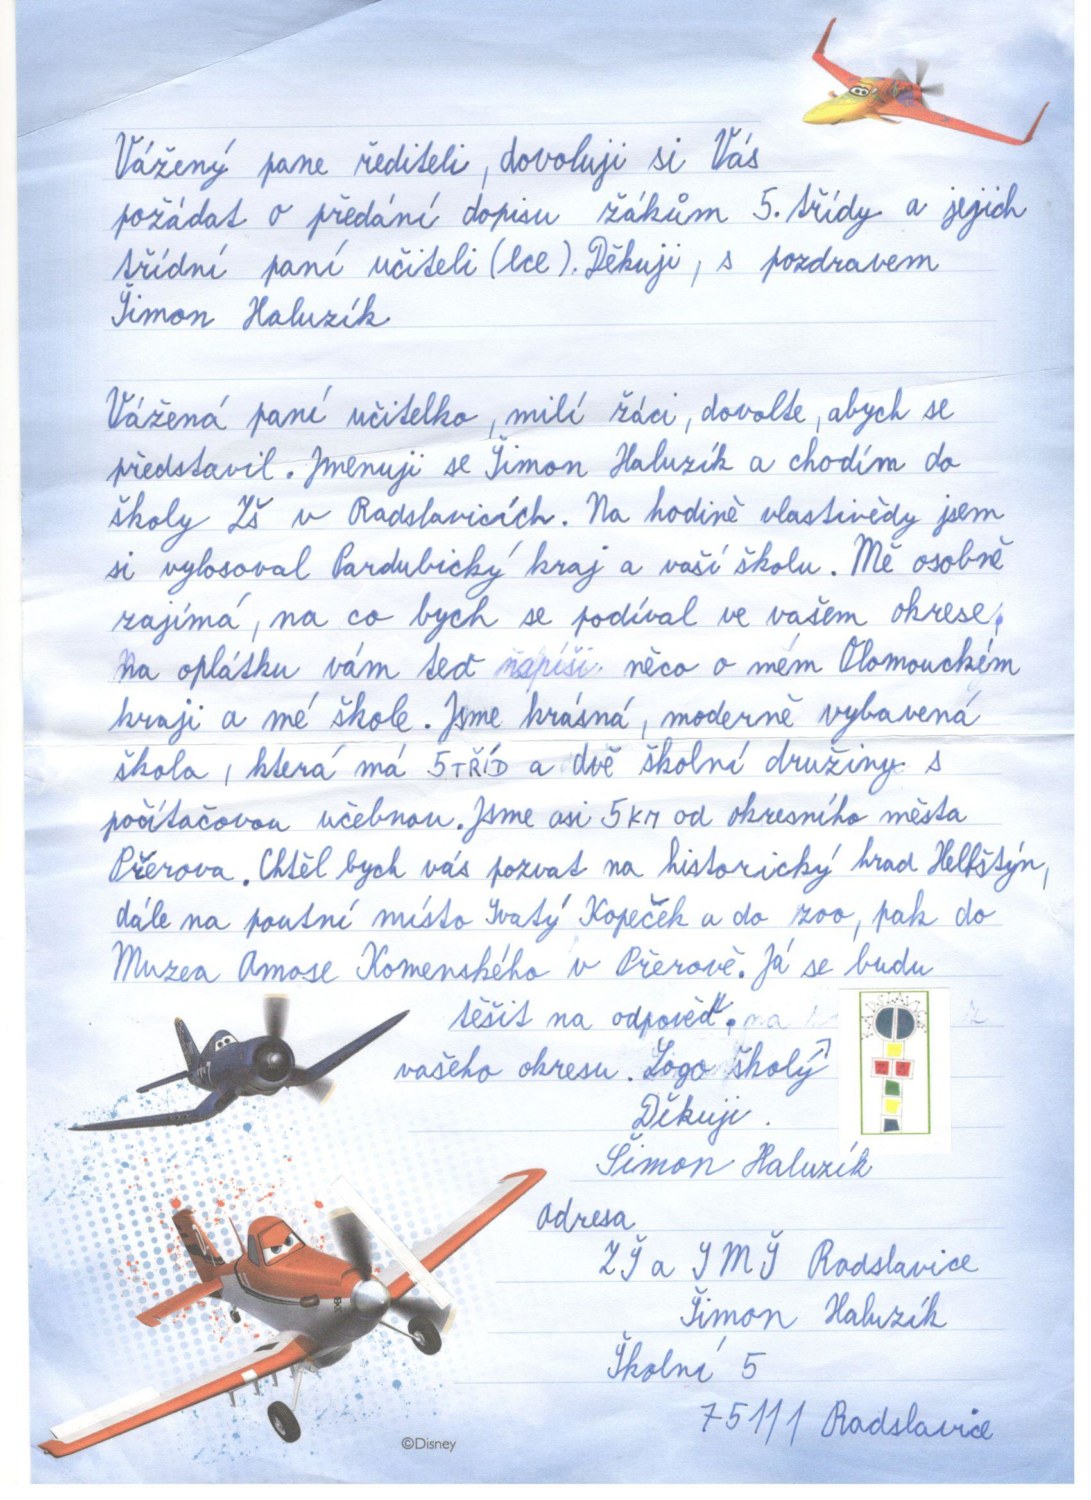 Vážený pane řediteli, dovoluji si Vás
požádat o předání dopisu žákům 5. třídy a jejich
třídní paní učiteli (lce). Děkuji, s pozdravem
Šimon Haluzík
Vážená paní učitelko, milí žáci, dovolte, abych se
představil. Jmenuji se Šimon Haluzík a chodím do
školy ZŠ v Radslavicích. Na hodině vlastivědy jsem
si vylosoval Pardubický kraj a vaší školu. Mě osobně
zajímá, na co bych se podíval ve vašem okrese.
Na oplátku vám teď napíši něco o mém Olomouckém
kraji a mé škole. Jsme krásná, moderně vybavená
škola, která má 5 TŘÍD a dvě školní družiny s
počítačovou učebnou. Jsme asi 5 KM od okresního města
Přerova. Chtěl bych vás pozvat na historický hrad Helfštýn,
dále na poutní místo Svatý Kopeček a do zoo, pak do
Muzea Amose Komenského v Přerově. Já se budu
těšit na odpověď. na
vašeho okresu. Logo školy
Děkuji.
Šimon Haluzík
Adresa
ZŠ a SMŠ Radslavice
Šimon Haluzík
Školní 5
75111 Radslavice
©Disney